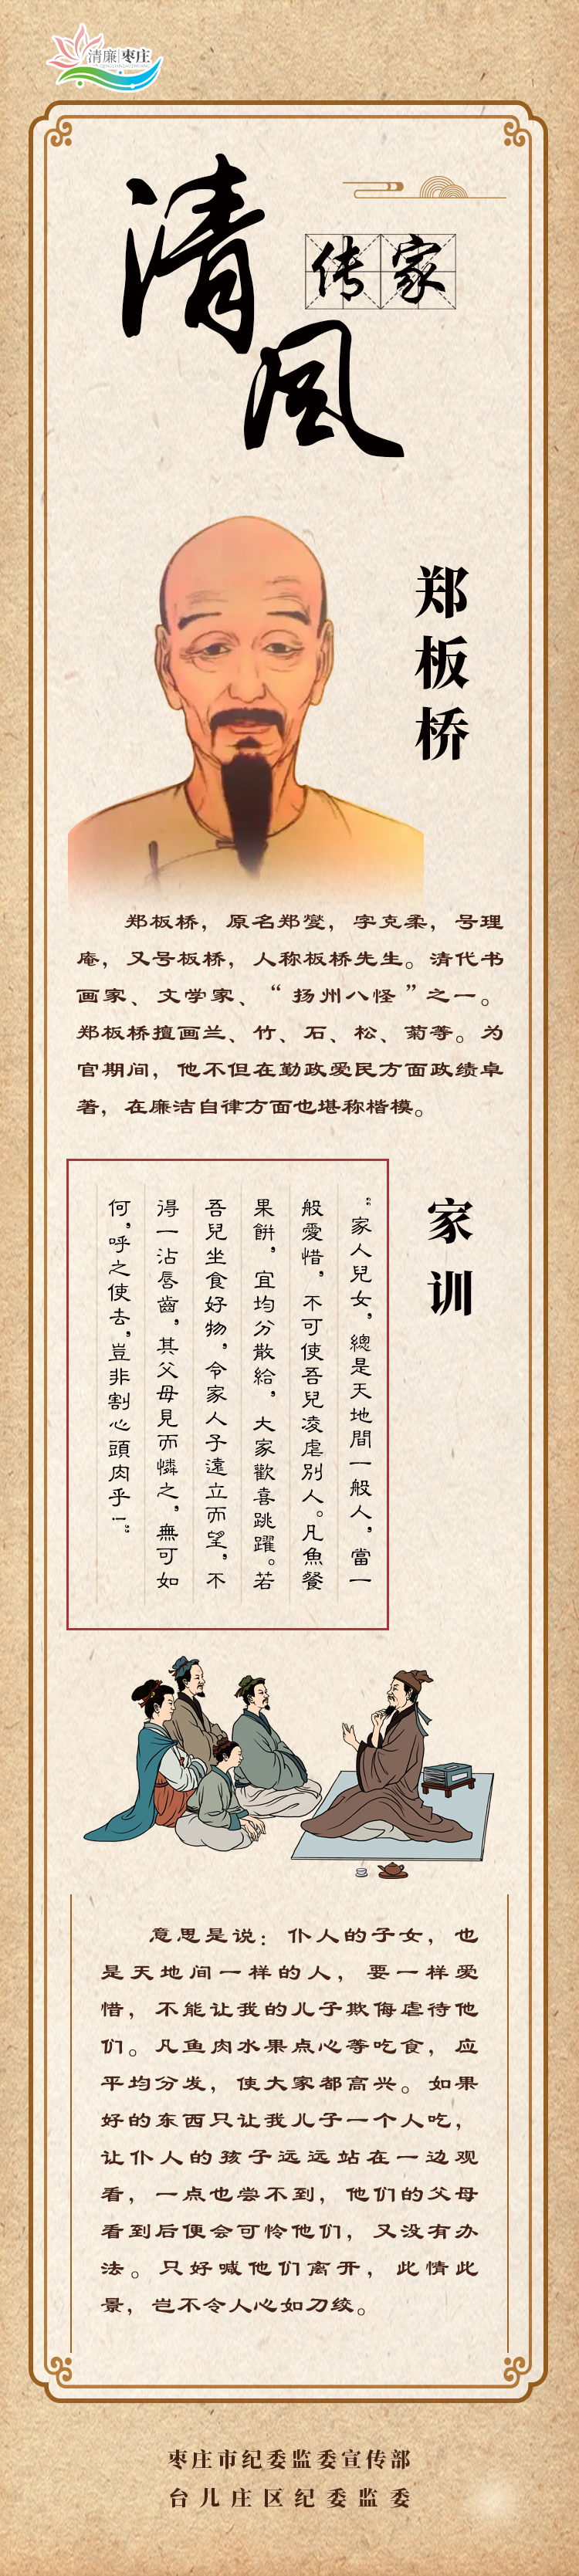 清廉 枣庄
清风
传家
郑板桥
郑板桥，原名郑燮，字克柔，号理
庵，又号板桥，人称板桥先生。清代书
画家、文学家、“扬州八怪”之一。
郑板桥擅画兰、竹、石、松、菊等。为
官期间，他不但在勤政爱民方面政绩卓
著，在廉洁自律方面也堪称楷模。
家训
“家人兒女，總是天地間一般人，當一
般愛惜，不可使吾兒凌虐別人。凡魚餐
果餅，宜均分散給，大家歡喜跳躍。若
吾兒坐食好物，令家人子遠立而望，不
得一沾唇齒，其父母見而憐之，無可如
何，呼之使去，豈非割心頭肉乎！”
意思是说：仆人的子女，也
是天地间一样的人，要一样爱
惜，不能让我的儿子欺侮虐待他
们。凡鱼肉水果点心等吃食，应
平均分发，使大家都高兴。如果
好的东西只让我儿子一个人吃，
让仆人的孩子远远站在一边观
看，一点也尝不到，他们的父母
看到后便会可怜他们，又没有办
法。只好喊他们离开，此情此
景，岂不令人心如刀绞。
枣庄市纪委监委宣传部
台儿庄区纪委监委